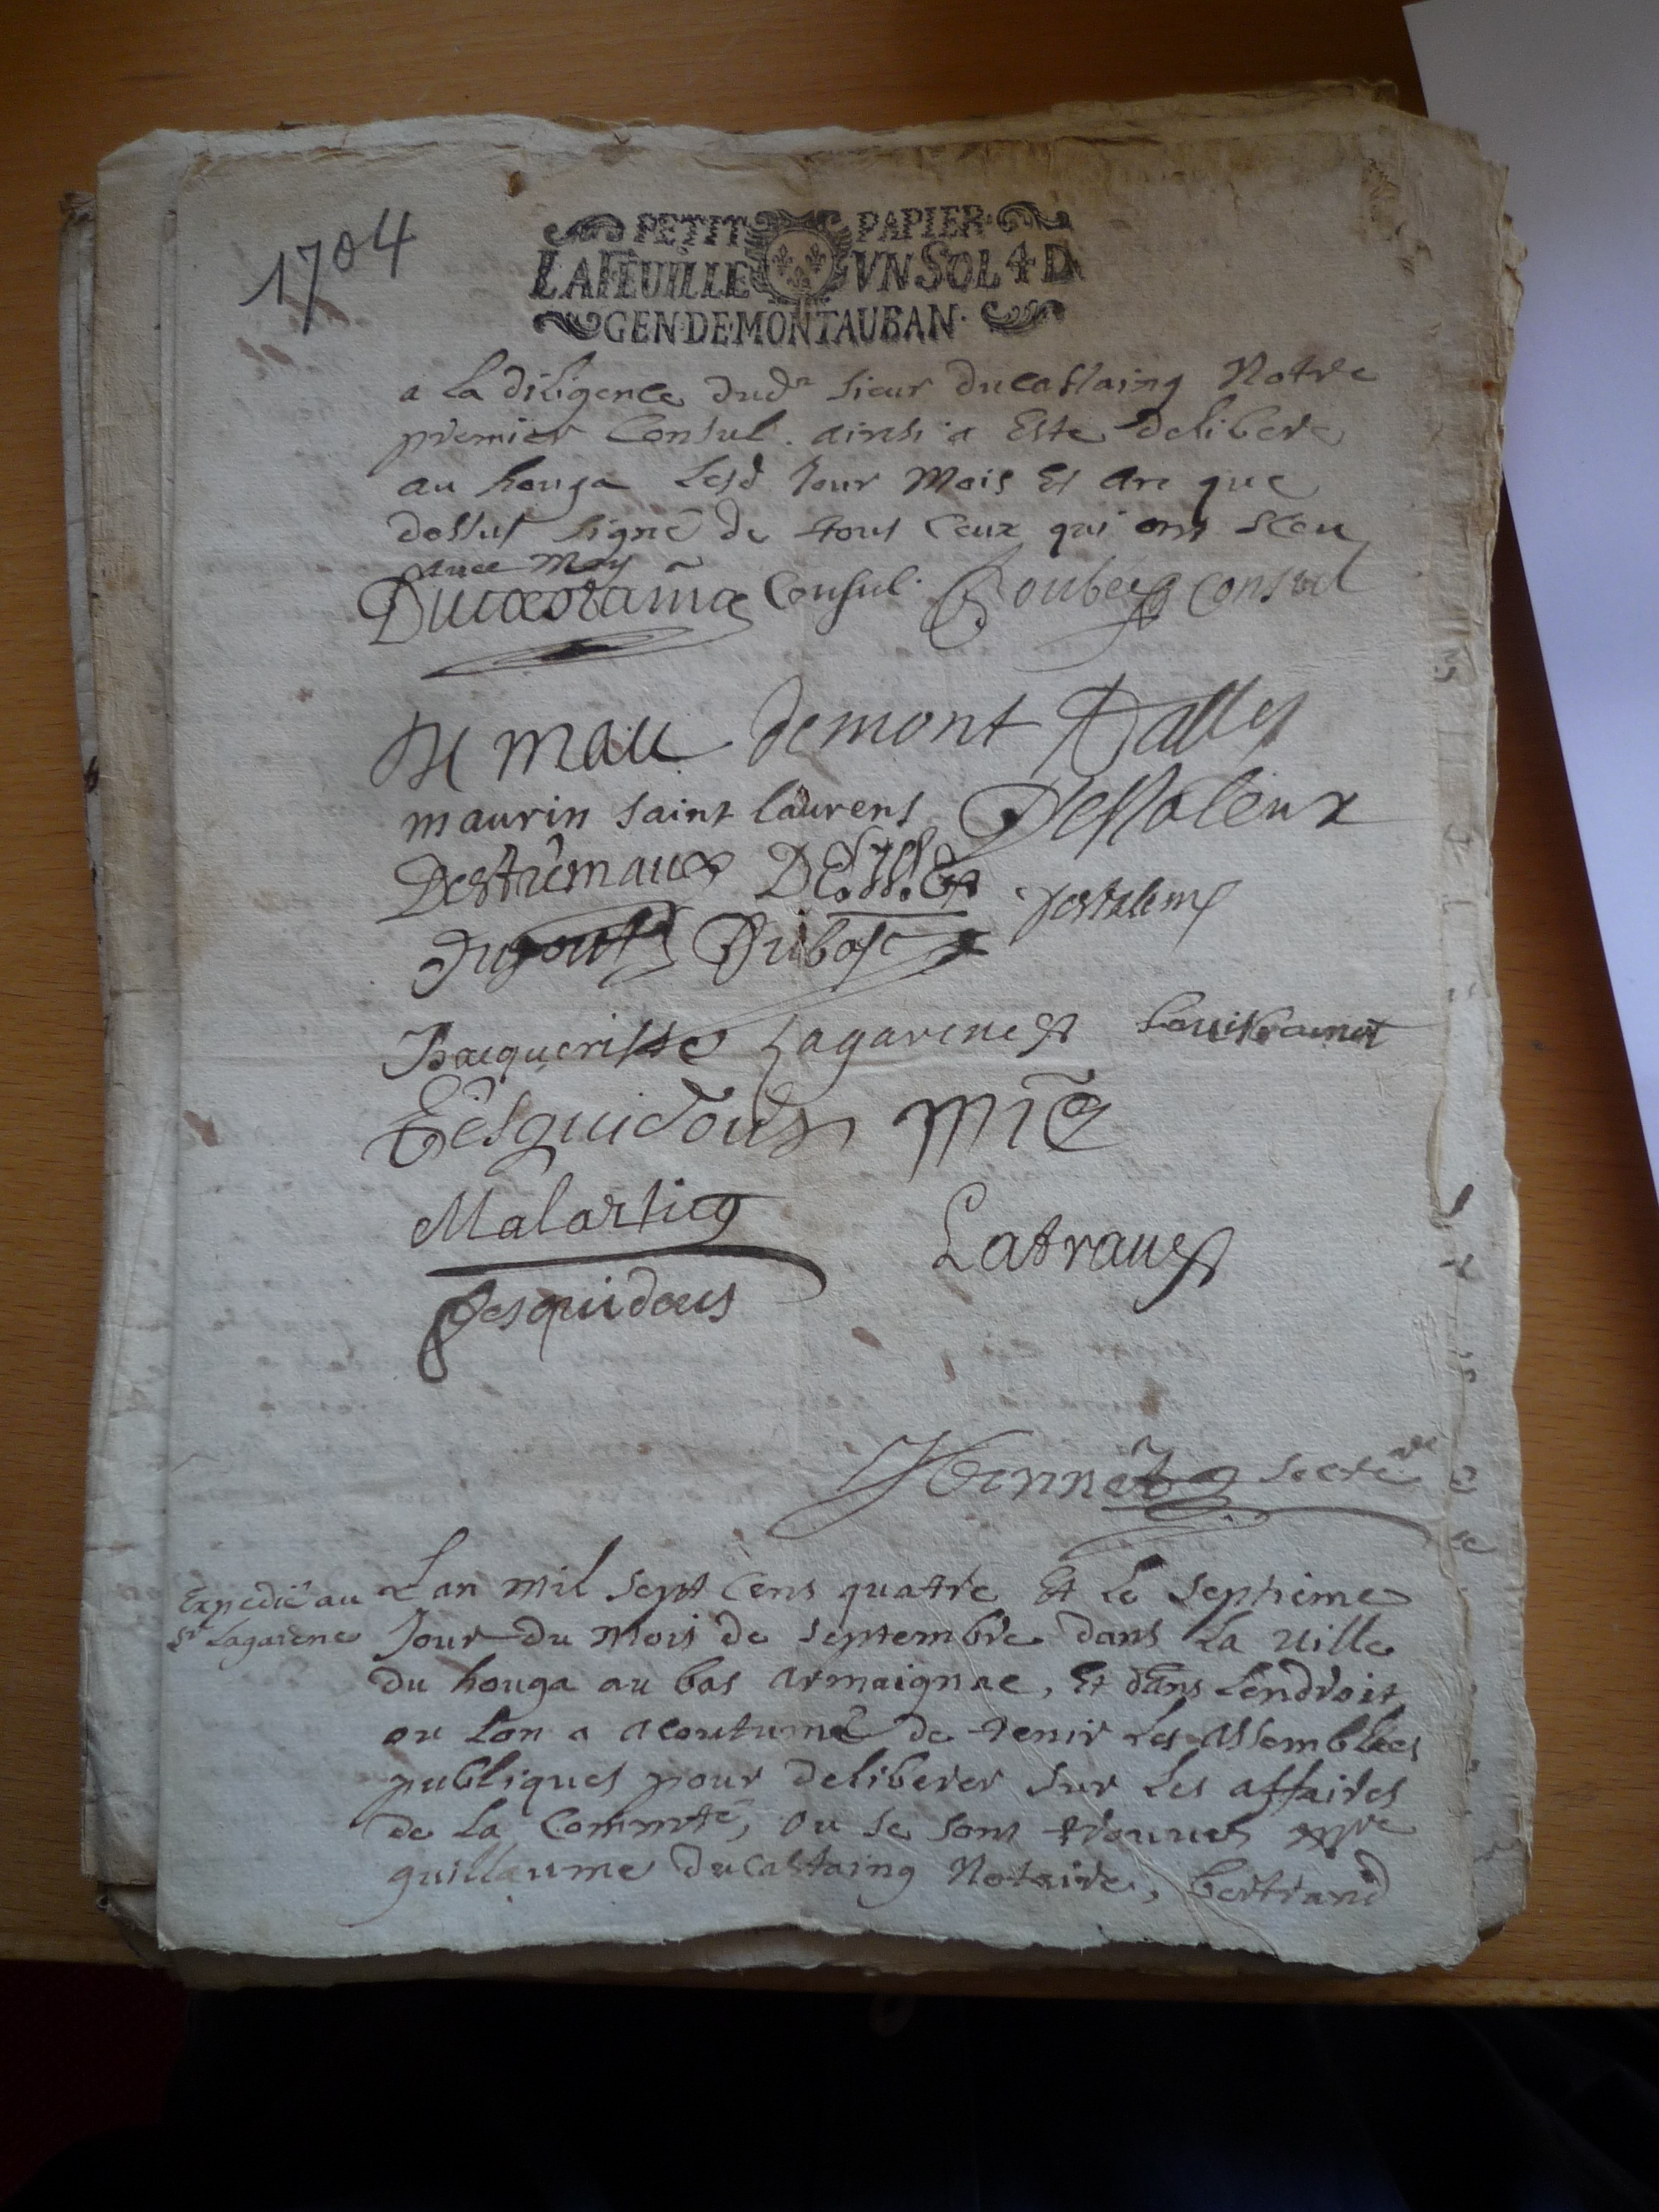 1704
PETIT PAPIER
LA FEUILLE VN SOL 4 D
GEN·DE·MONTAUBAN·
a La diligence dudt sieur ducastaing Notre
premier Consul. ainsi a Este delibere
au houga Lesd Jour Mois Et an que
dessus signé de tous Ceux qui ont sceu
auec Moy
Ducastaing Consul. Consul
mau demont
maurin saint laurens
Destremaux
Dubosc
Bacquerisse Lagarene
Desquidous
Malartic
Latraue
Desquidous
secre.re
Expedié au
sr Lagarene
Lan mil sept Cens quatre Et Le septieme
Jour du mois de septembre dans La uille
du houga au bas armaignac, Et dans Lendroit
ou Lon a acoutumé de tenir Les assemblées
publiques pour deliberer sur Les affaires
de La Commté, ou se sont trouues
guillaume ducastaing Notaire, bertrand